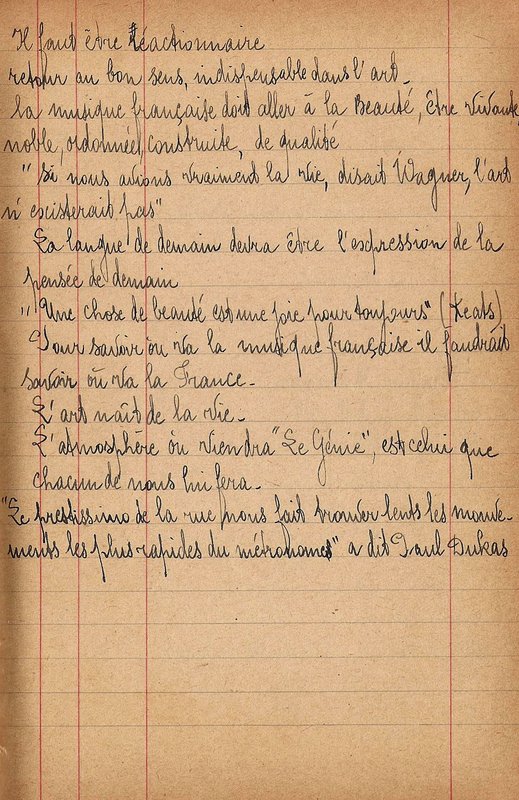 Il faut être réactionnaire
retour au bon sens, indispensable dans l'art_
La musique française doit aller à la Beauté, être vivante,
noble, ordonnée, construite, de qualité
"Si nous avions vraiment la vie, disait Wagner, l'art
n'existerait pas"
La langue de demain devra être l'expression de la
pensée de demain
"Une chose de beauté est une joie pour toujours" (Keats)
Pour savoir où va la musique française il faudrait
savoir où va la France_
L'art naît de la vie_
L'atmosphère où viendra "Le Génie", est celui que
chacun de nous lui fera_
"Le prestissimo de la rue nous fait trouver lents les mouve-
ments les plus rapides du métronome" a dit Paul Dukas